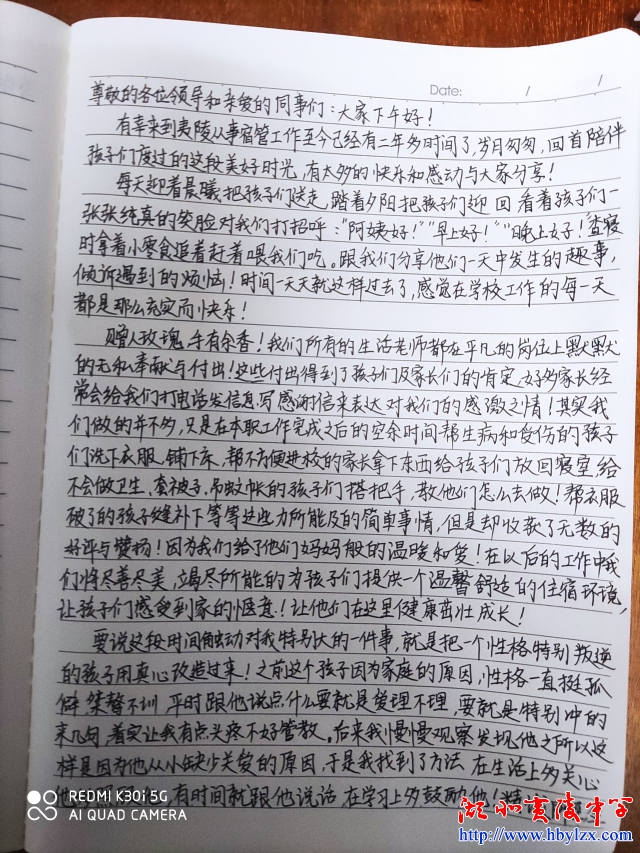 Date: / /
尊敬的各位领导和亲爱的同事们：大家下午好！
有幸来到夷陵从事宿管工作至今已经有二年多时间了，岁月匆匆，回首陪伴
孩子们度过的这段美好时光，有太多的快乐和感动与大家分享！
每天迎着晨曦把孩子们送走，踏着夕阳把孩子们迎回看着孩子们一
张张纯真的笑脸对我们打招呼："阿姨好！""早上好！""晚上好！"查寝
时拿着小零食追着赶着喂我们吃。跟我们分享他们一天中发生的趣事，
倾诉遇到的烦恼！时间一天天就这样过去了，感觉在学校工作的每一天
都是那么充实而快乐！
赠人玫瑰，手有余香！我们所有的生活老师都在平凡的岗位上默默
的无私奉献与付出！这些付出得到了孩子们及家长们的肯定，好多家长经
常会给我们打电话发信息写感谢信来表达对我们的感激之情！其实我
们做的并不多，只是在本职工作完成之后的空余时间帮生病和受伤的孩子
们洗下衣服，铺下床，帮不方便进校的家长拿下东西给孩子们放回寝室，给
不会做卫生、套被子、吊蚊帐的孩子们搭把手，教他们怎么去做！帮衣服
破了的孩子缝补下等等这些力所能及的简单事情，但是却收获了无数的
好评与赞扬！因为我们给了他们妈妈般的温暖和爱！在以后的工作中我
们将尽善尽美，竭尽所能的为孩子们提供一个温馨舒适的住宿环境，
让孩子们感受到家的惬意！让他们在这里健康茁壮成长！
要说这段时间触动对我特别大的一件事，就是把一个性格特别叛逆
的孩子用真心改造过来！之前这个孩子因为家庭的原因，性格一直挺孤
僻，桀骜不驯，平时跟他说点什么要就是爱理不理，要就是特别冲的
来几句，着实让我有点头疼不好管教。后来我慢慢观察发现他之所以这
样是因为他从小缺少关爱的原因，于是我找到了方法，在生活上多关心
有时间就跟他说话，在学习上多鼓励他！
REDMI K30i 5G
AI QUAD CAMERA
湖北夷陵中学
http://www.hbylzx.com